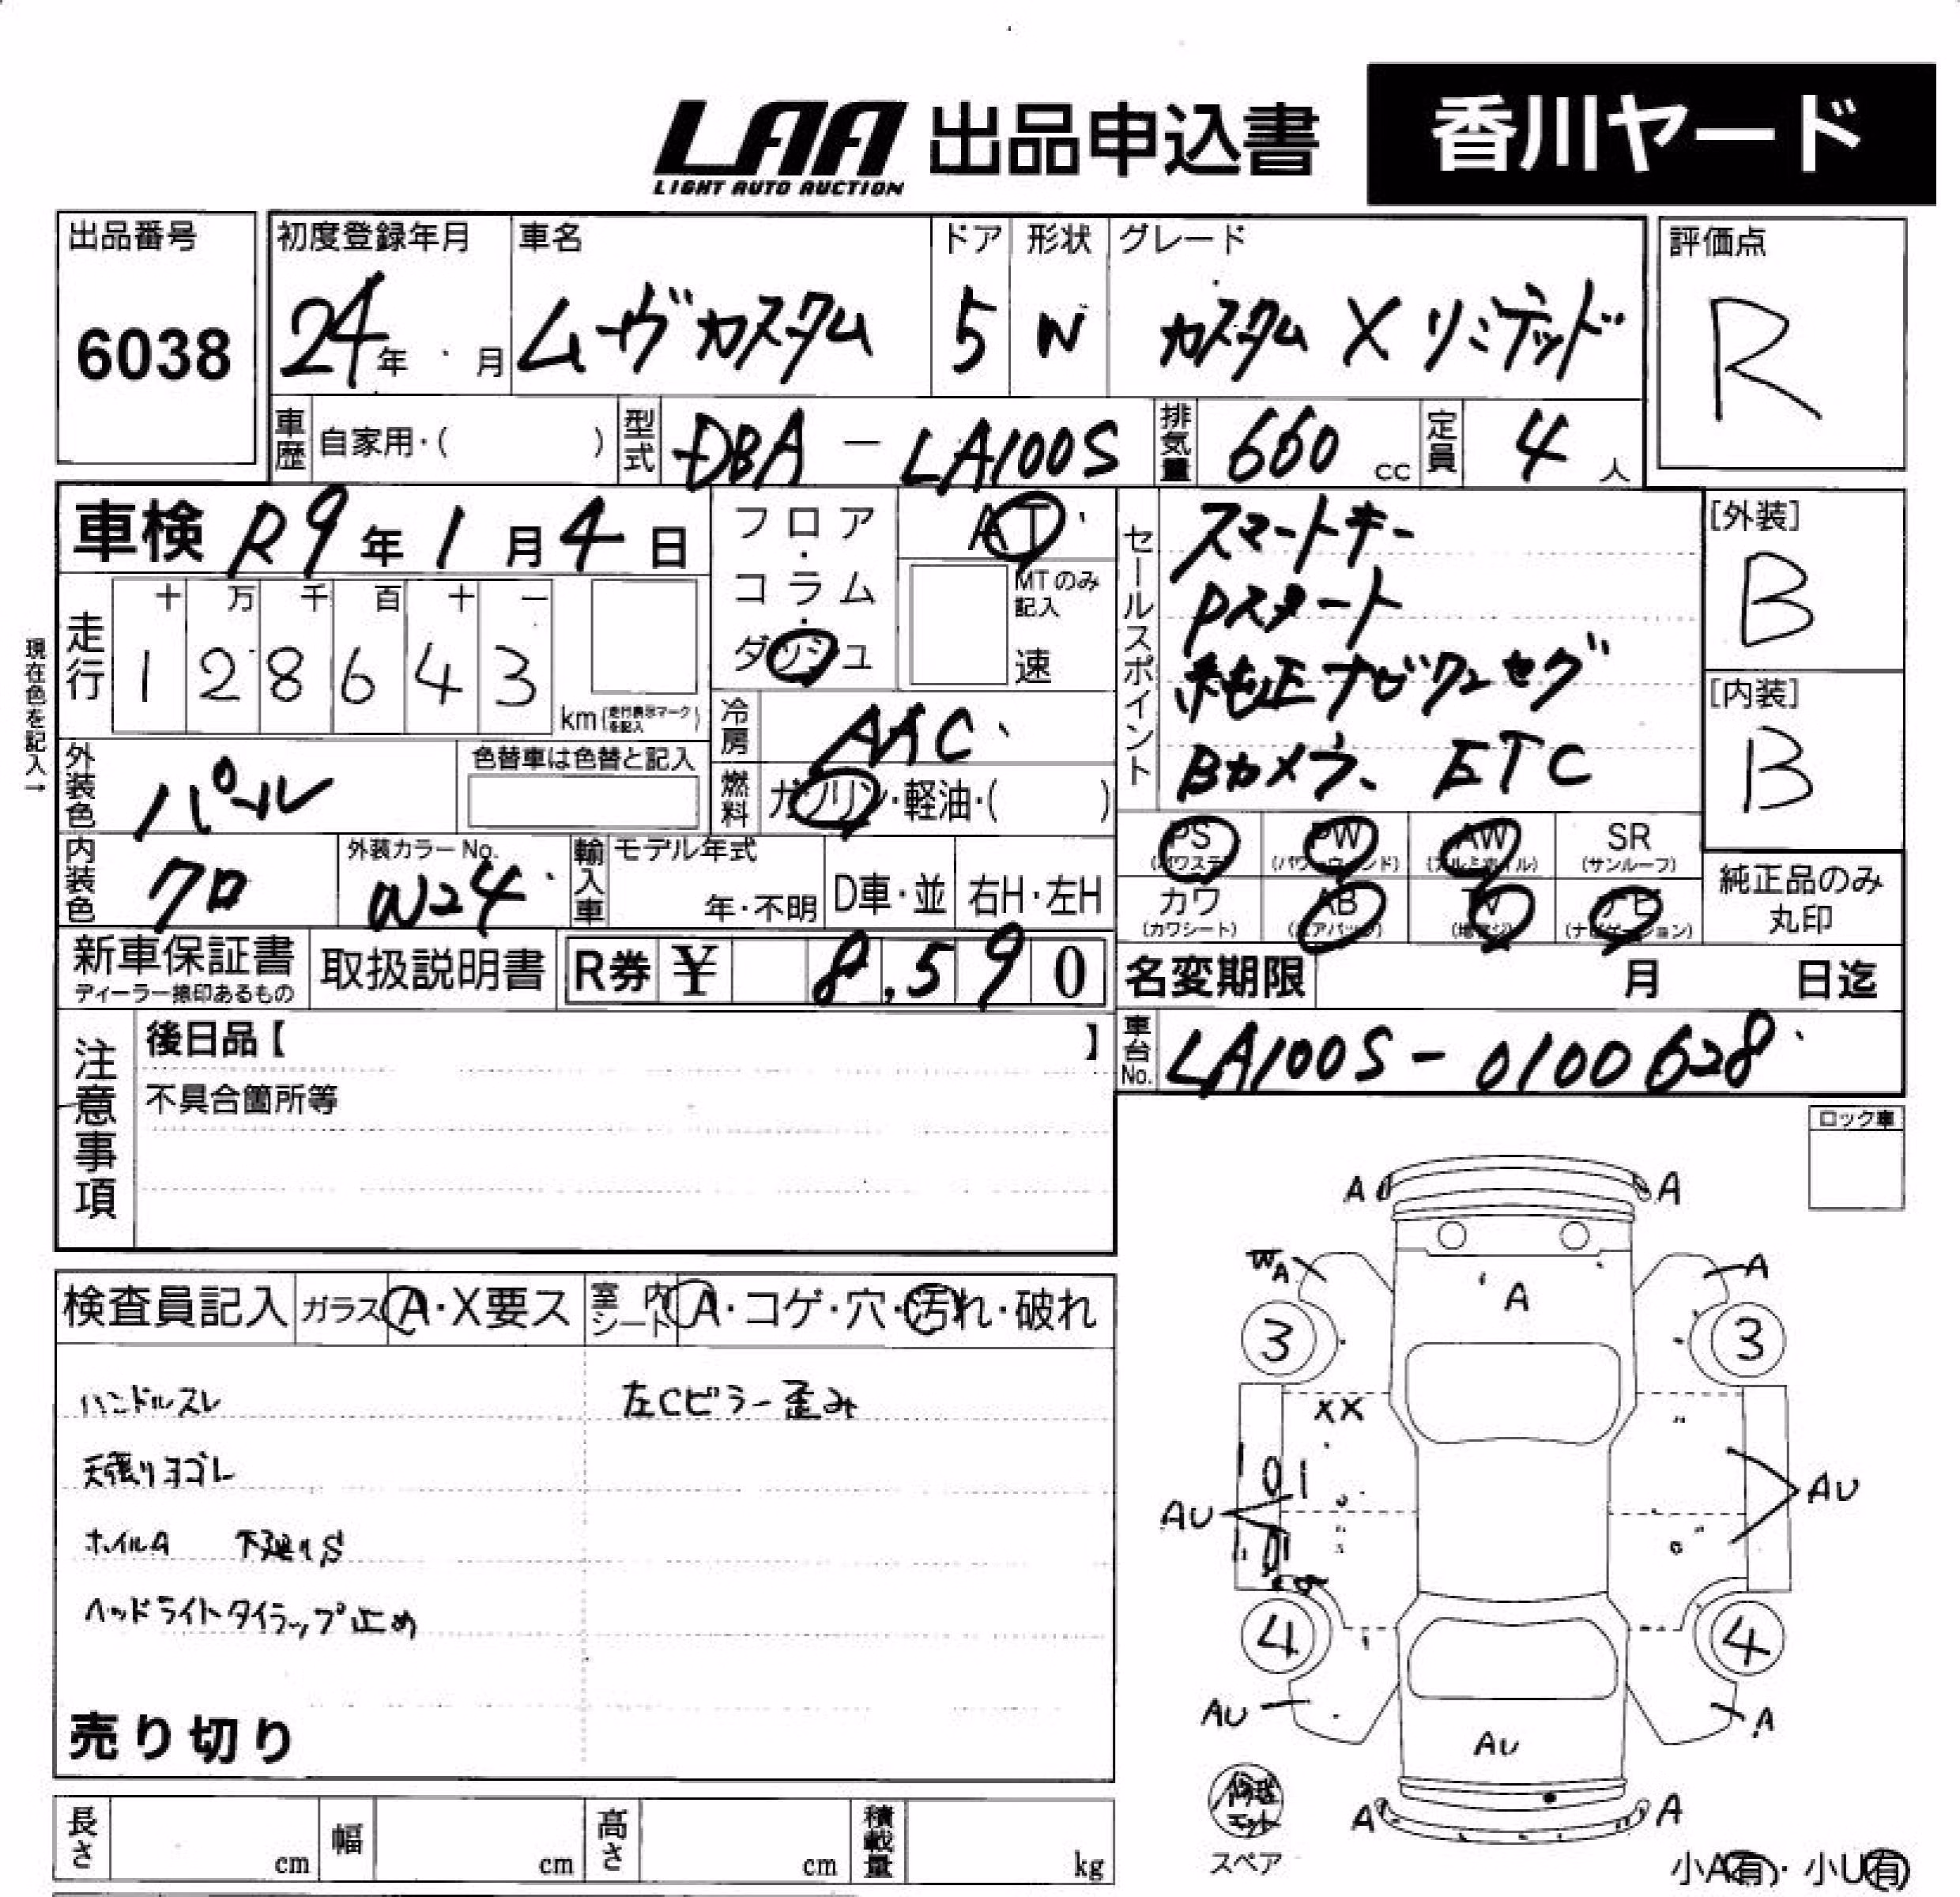 LAA 出品申込書 香川ヤード
LIGHT AUTO AUCTION
出品番号 初度登録年月 車名 ドア 形状 グレード 評価点
6038 24年 月 ムーヴカスタム 5 W カスタム X リミテッド R
車歴 自家用・( ) 型式 DBA - LA100S 排気量 660 cc 定員 4 人
車検 R9年1月4日 フロア・コラム・ダッシュ AT セールスポイント スマートキー [外装]
MTのみ記入 速 Pスタート B
現在色を記入→ 走行 十 万 千 百 十 一
1 2 8 6 4 3 km(走行表示マークを記入) 純正ナビワンセグ [内装]
冷房 AAC Bカメラ、ETC B
外装色 パール 色替車は色替と記入 燃料 ガソリン・軽油・( )
PS (パワステ) PW (パワーウィンド) AW (アルミホイル) SR (サンルーフ)
内装色 クロ 外装カラーNo. W24 輸入車 モデル年式 年・不明 D車・並 右H・左H
カワ (カワシート) AB (エアバッグ) TV (地デジ) ナビ (ナビゲーション) 純正品のみ丸印
新車保証書 ディーラー捺印あるもの 取扱説明書 R券 ¥ 8,590 名変期限 月 日迄
注意事項 後日品【 】 車台No. LA100S-0100628
不具合箇所等
ロック車
検査員記入 ガラス A・X要ス 室内シート A・コゲ・穴・汚れ・破れ
ハンドルスレ 左Cピラー歪み
天張りヨゴレ
ホイルA 下廻りS
ヘッドライトタイラップ止め
売り切り
A A
WA A
A
3 3
XX
AU AU
4 4
AU A
AU
A A
修理キット
スペア
小A有・小U有
長さ cm 幅 cm 高さ cm 積載量 kg